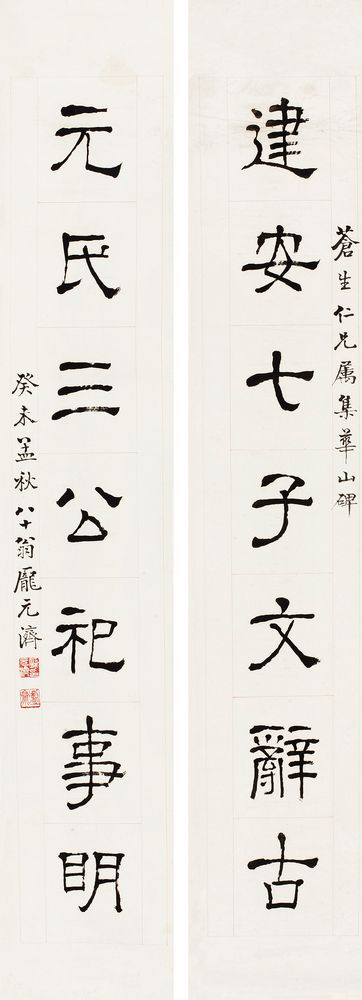 蒼生仁兄属集華山碑
建安七子文辭古
元氏三公祀事明
癸未孟秋八十翁龐元濟